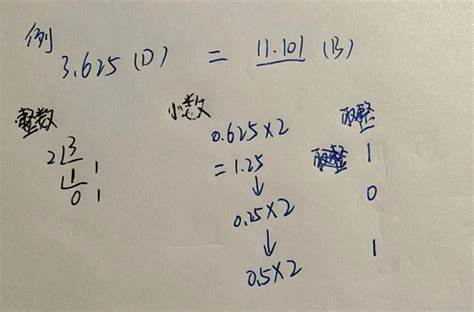 例
3.625 (D) = 11.101 (B)
整数
2 3
1 1
0 1
小数
0.625×2
=1.25
↓
0.25×2
↓
0.5×2
取整
1
0
1